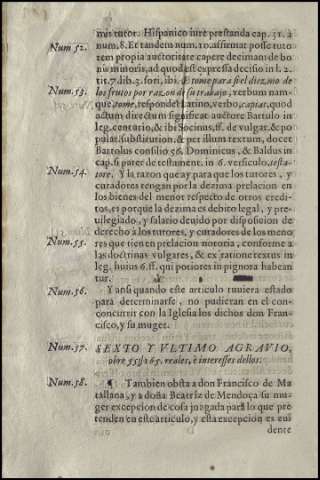 mis tutor. Hispanico iure præstanda cap. 31. à
Num. 52. num. 8. Et tandem num. 10. assirmat posse tuto
rem propia auctoritate capere decimam de bo
nis minoris, ad quod est expressa decisio in l. 2.
tit. 7. lib. 3. fori, ibi. E tome para si el diezmo de
Num. 53. los frutos por razon de su trabajo, verbum nam-
que, tome, respondet Latino, verbo, capiat, quod
actum directum significat auctore Bartulo in
leg. centurio, & ibi Socinus, ff. de vulgar. & po
pular. substitution. & per illum textum, docet
Bartolus consilio 56. Dominicus, & Baldus in
cap. si pater de testament. in 6. versiculo, testa-
Num. 54. tore. Y la razon que ay para que los tutores, y
curadores tengan por la dezima prelacion en
los bienes del menor respecto de otros credi-
tos, es porque la dezima es debito legal, y pre-
uilegiado, y salario deuido por disposicion de
derecho à los tutores, y curadores de los meno
Num. 55. res que tienen prelacion notoria, conforme a
las doctrinas vulgares, & ex ratione textus in
leg. huius 6. ff. qui potiores in pignora habean
tur.
Num. 56. Y ansi quando este articulo tuuiera estado
para determinarse, no pudieran en el con-
concurrir con la Iglesia los dichos don Fran-
cisco, y su muger.
Num. 57. SEXTO Y VLTIMO AGRAVIO,
sobre 55 j̃ 65. reales, e interesses dellos.
Num. 58. ¶ Tambien obsta a don Francisco de Ma
tallana, y a doña Beatriz de Mendoça su mu-
ger excepcion de cosa juzgada para lo que pre
tenden en este articulo, y esta excepcion es eui
dente